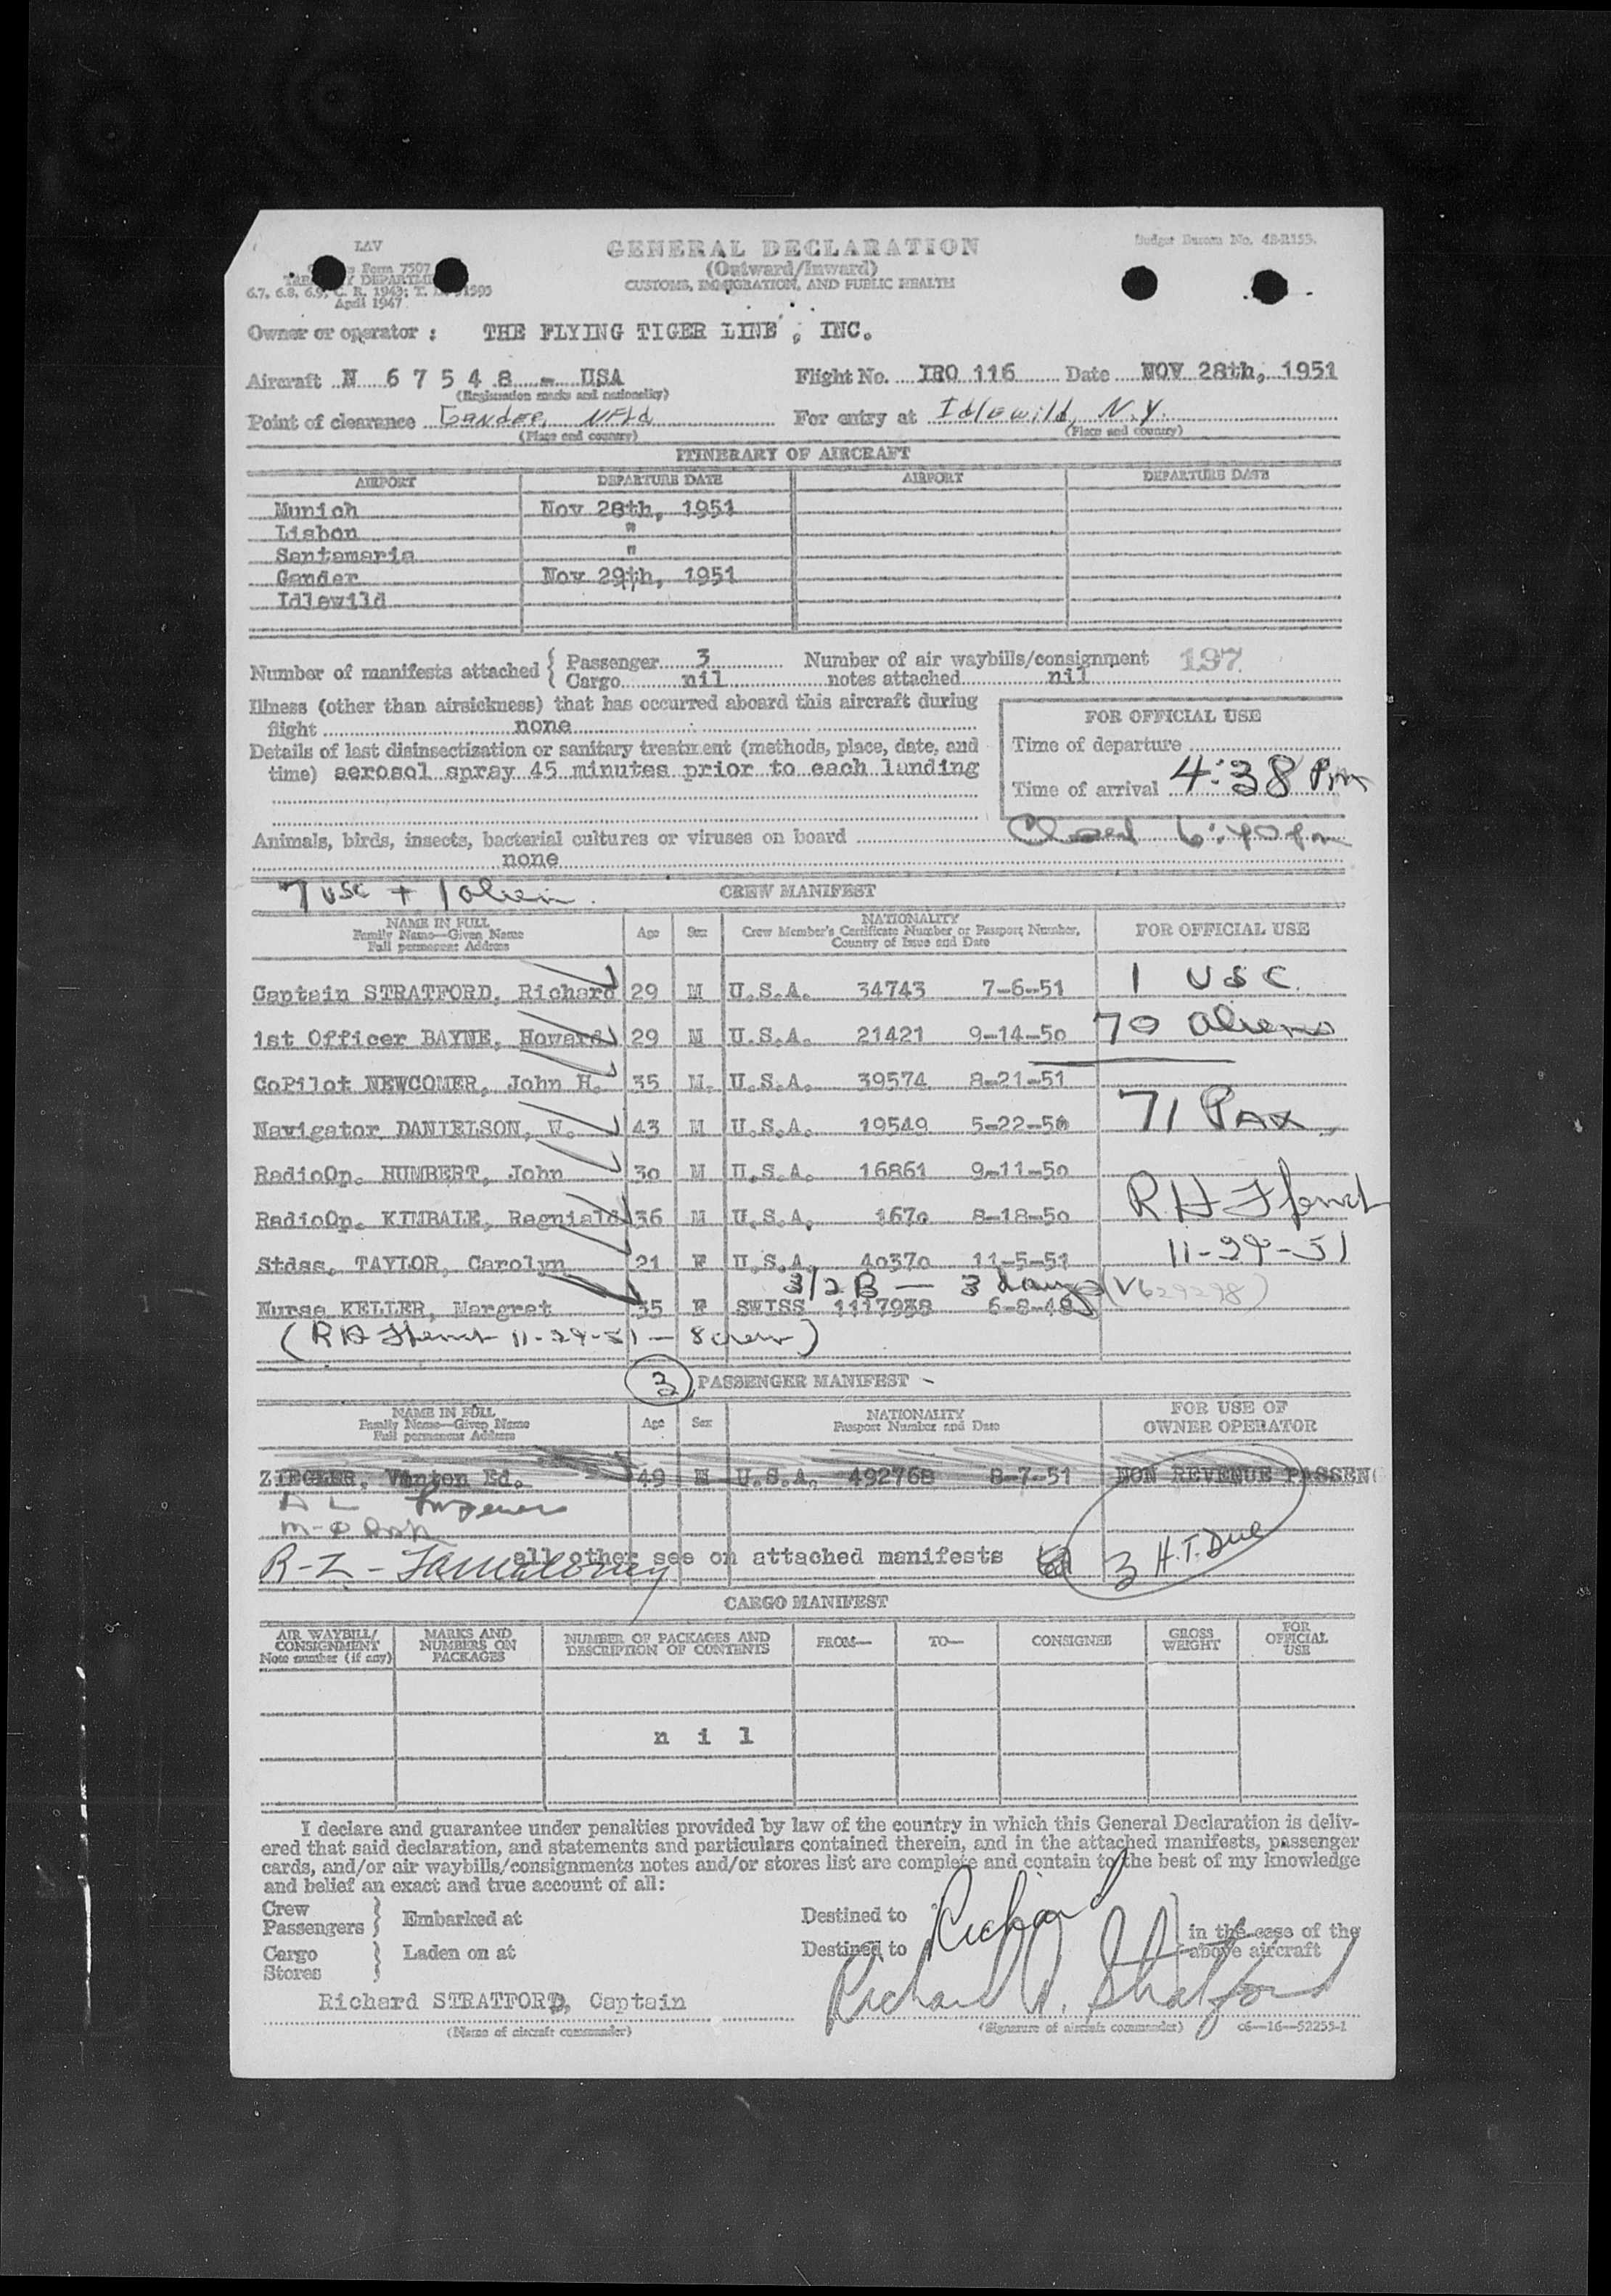 LAV
GENERAL DECLARATION
Budget Bureau No. 48-R153.
Form 7507
(Outward/Inward)
DEPARTM
CUSTOMS, IMMIGRATION, AND PUBLIC HEALTH
6.7, 6.8, 6.9, C. R. 1943; T.
April 1947
Owner or operator : THE FLYING TIGER LINE , INC.
Aircraft N 6 7 5 4 8 - USA Flight No. IRO 116 Date NOV 28th, 1951
(Registration marks and nationality)
Point of clearance Gander, NFld For entry at Idlewild, N.Y.
(Place and country) (Place and country)
ITINERARY OF AIRCRAFT
AIRPORT DEPARTURE DATE AIRPORT DEPARTURE DATE
Munich Nov 28th, 1951
Lisbon "
Santamaria "
Gander Nov 29th, 1951
Idlewild
Number of manifests attached { Passenger 3 Number of air waybills/consignment 197
Cargo nil notes attached nil
Illness (other than airsickness) that has occurred aboard this aircraft during
flight none
FOR OFFICIAL USE
Details of last disinsectization or sanitary treatment (methods, place, date, and
time) aerosol spray 45 minutes prior to each landing
Time of departure
Time of arrival 4:38 Pm
Animals, birds, insects, bacterial cultures or viruses on board
Closed 6:40 pm
none
7 USC + 1 alien.
CREW MANIFEST
NAME IN FULL Age Sex NATIONALITY FOR OFFICIAL USE
Family Name—Given Name Crew Member's Certificate Number or Passport Number,
Full permanent Address Country of Issue and Date
Captain STRATFORD, Richard 29 M U.S.A. 34743 7-6-51 1 USC
1st Officer BAYNE, Howard 29 M U.S.A. 21421 9-14-50 70 aliens
CoPilot NEWCOMER, John H. 35 M. U.S.A. 39574 8-21-51
Navigator DANIELSON, V. 43 M U.S.A. 19549 5-22-50 71 PAX
RadioOp. HUMBERT, John 30 M U.S.A. 16861 9-11-50
RadioOp. KIMBALE, Regniald 36 M U.S.A. 1670 8-18-50 R H
Stdss. TAYLOR, Carolyn 21 F U.S.A. 40370 11-5-51 11-29-51
3/2 B — 3 days (V629298)
Nurse KELLER, Margret 35 F SWISS 1117938 6-8-48
(R H 11-29-51 — 8 crew)
3 PASSENGER MANIFEST -
NAME IN FULL Age Sex NATIONALITY FOR USE OF
Family Name—Given Name Passport Number and Date OWNER OPERATOR
Full permanent Address
ZIEGLER, Vinton Ed. 49 M U.S.A. 492768 8-7-51 NON REVENUE PASSEN
all other see on attached manifests
3 H.T. Due
CARGO MANIFEST
AIR WAYBILL/ CONSIGNMENT Note number (if any) MARKS AND NUMBERS ON PACKAGES NUMBER OF PACKAGES AND DESCRIPTION OF CONTENTS FROM— TO— CONSIGNEE GROSS WEIGHT FOR OFFICIAL USE
n i l
I declare and guarantee under penalties provided by law of the country in which this General Declaration is deliv-
ered that said declaration, and statements and particulars contained therein, and in the attached manifests, passenger
cards, and/or air waybills/consignments notes and/or stores list are complete and contain to the best of my knowledge
and belief an exact and true account of all:
Crew
Passengers } Embarked at Destined to Richard
Cargo
Stores } Laden on at Destined to
in the case of the
above aircraft
Richard STRATFORD, Captain Richard W. Stratford
(Name of aircraft commander) (Signature of aircraft commander) c6—16—52255-1